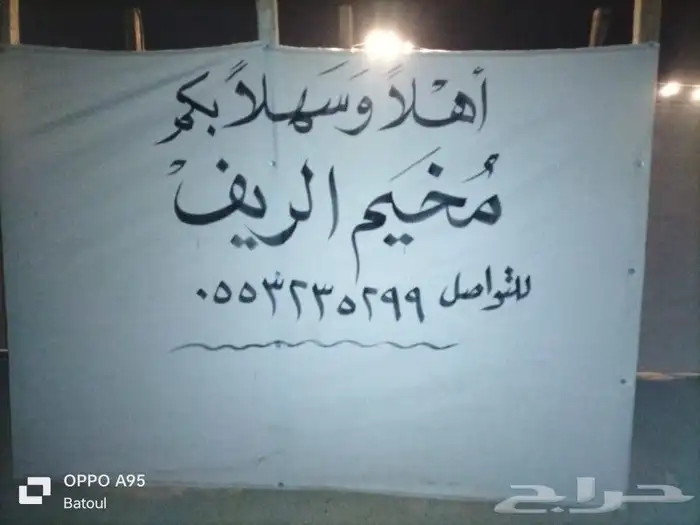 أهْلاً وَسَهلاً بكم
مُخيَم الريف
للتواصل ٠٥٥٣٢٣٥٢٩٩
OPPO A95
Batoul
حراج